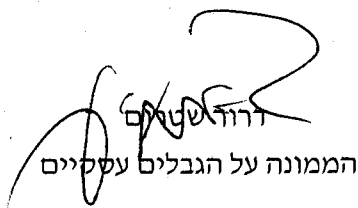 דרור שטרום
הממונה על הגבלים עסקיים